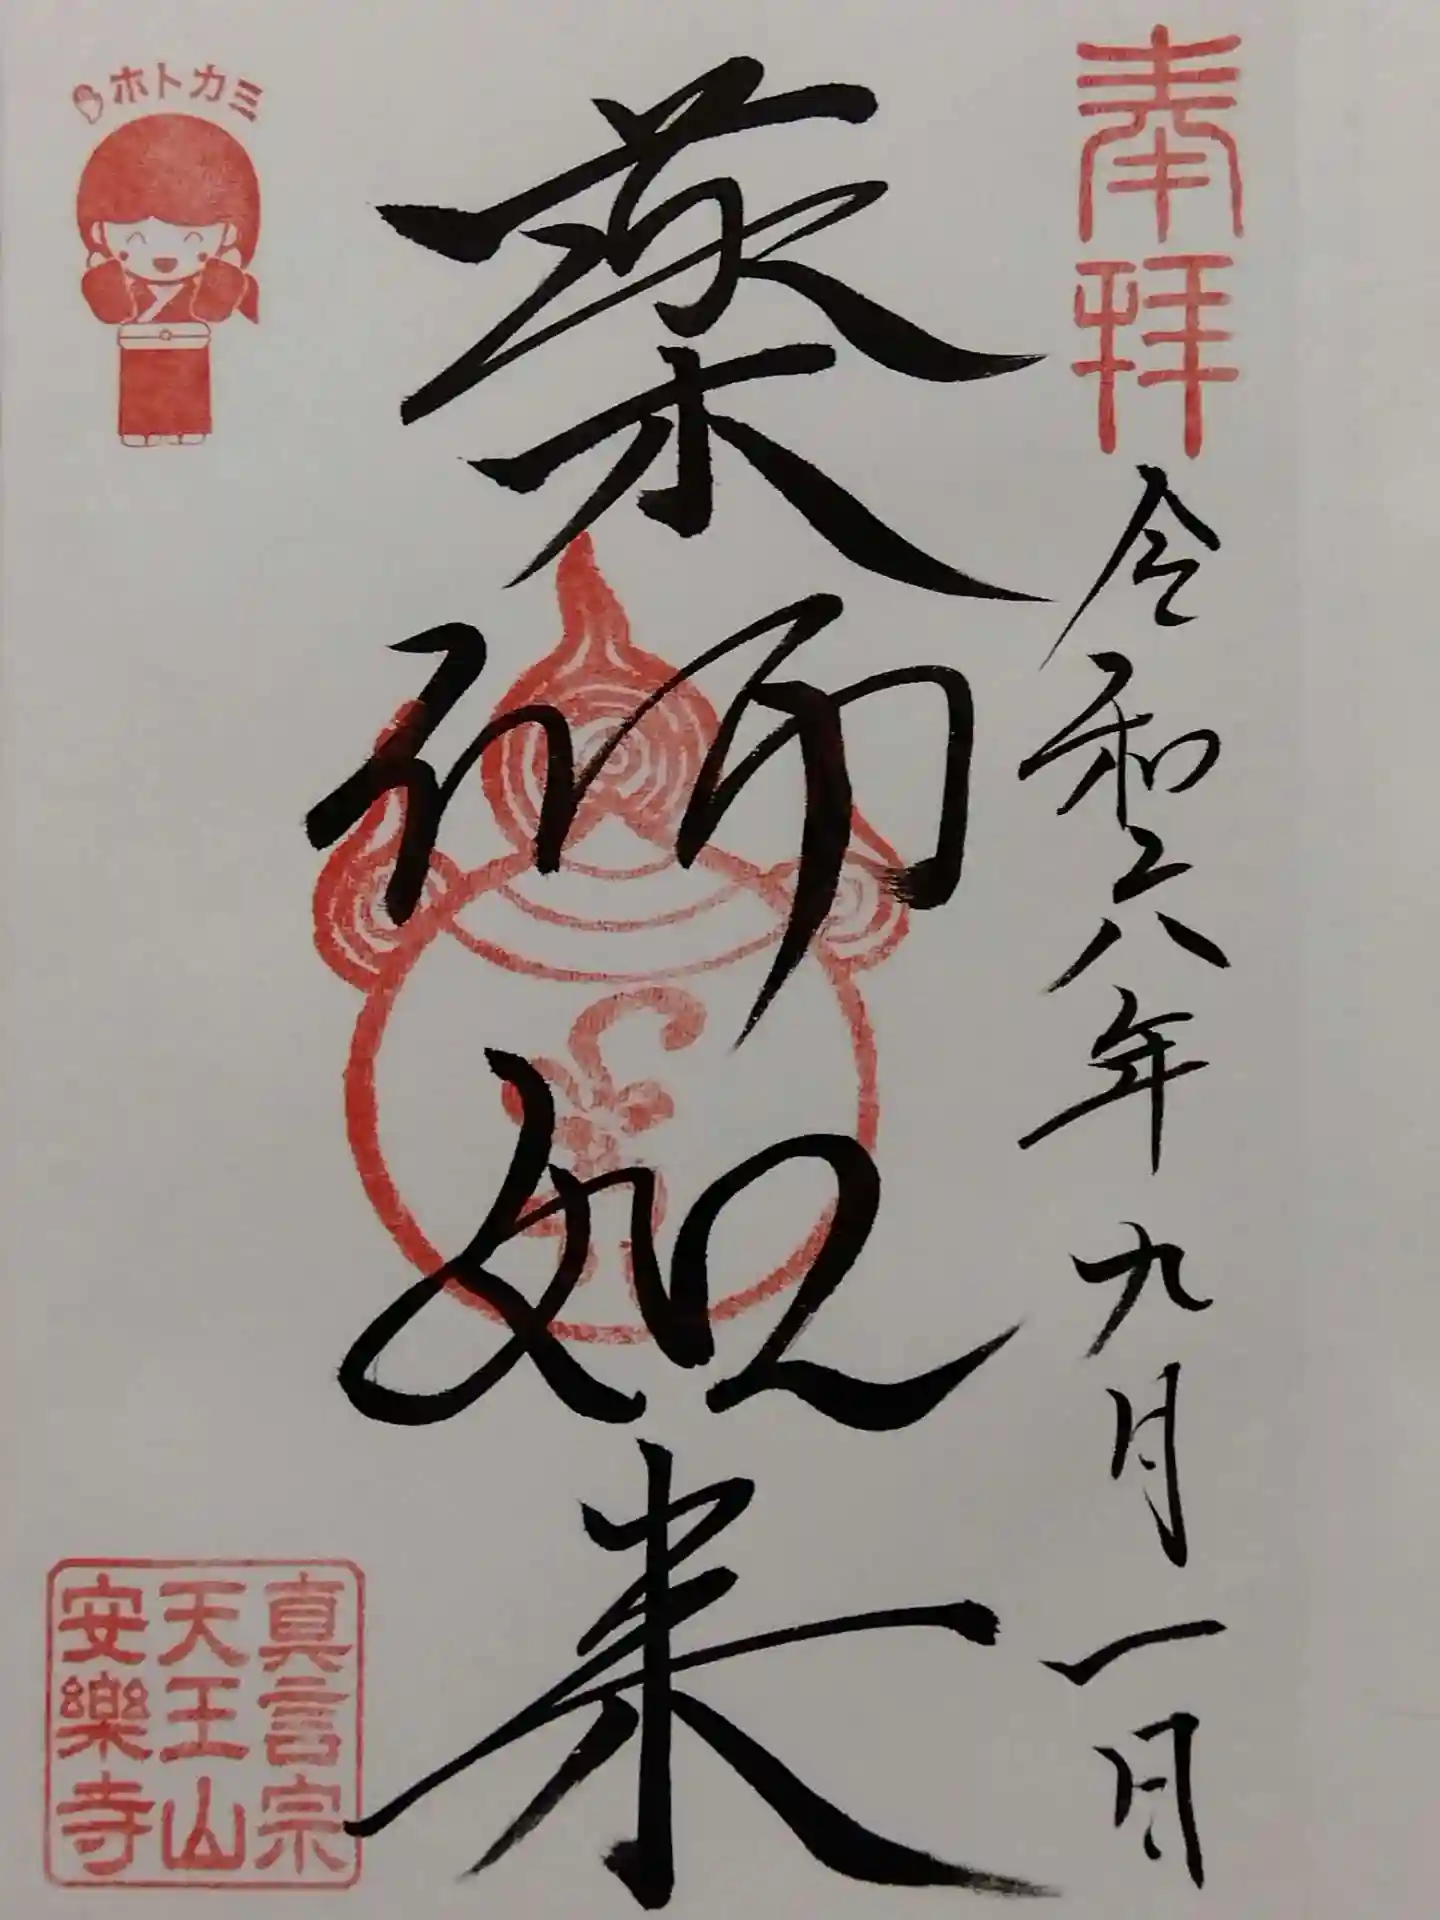 奉拝
令和六年九月一日
薬師如来
ホトカミ
真言宗
天王山
安樂寺